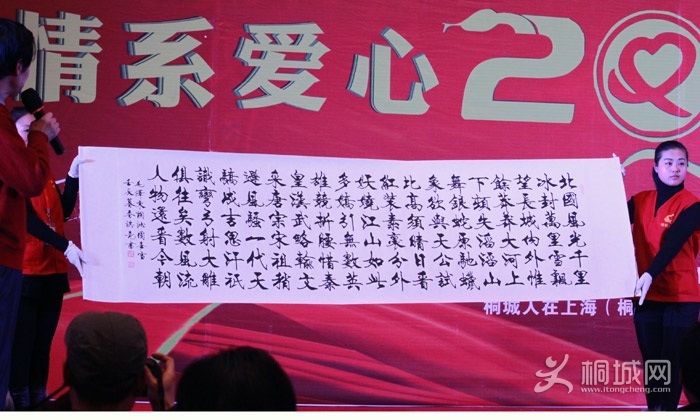 情系爱心20
北國風光千里
冰封萬里雪飄
望長城內外惟
餘莽莽大河上
下頓失滔滔山
舞銀蛇原馳蠟
象欲與天公試
比高須晴日看
紅裝素裹分外
妖嬈江山如此
多嬌引無數英
雄競折腰惜秦
皇漢武略輸文
采唐宗宋祖稍
遜風騷一代天
驕成吉思汗祇
識彎弓射大雕
俱往矣數風流
人物還看今朝
毛澤東詞沁園春雪
桐城人在上海（桐
桐城网
www.itongcheng.com